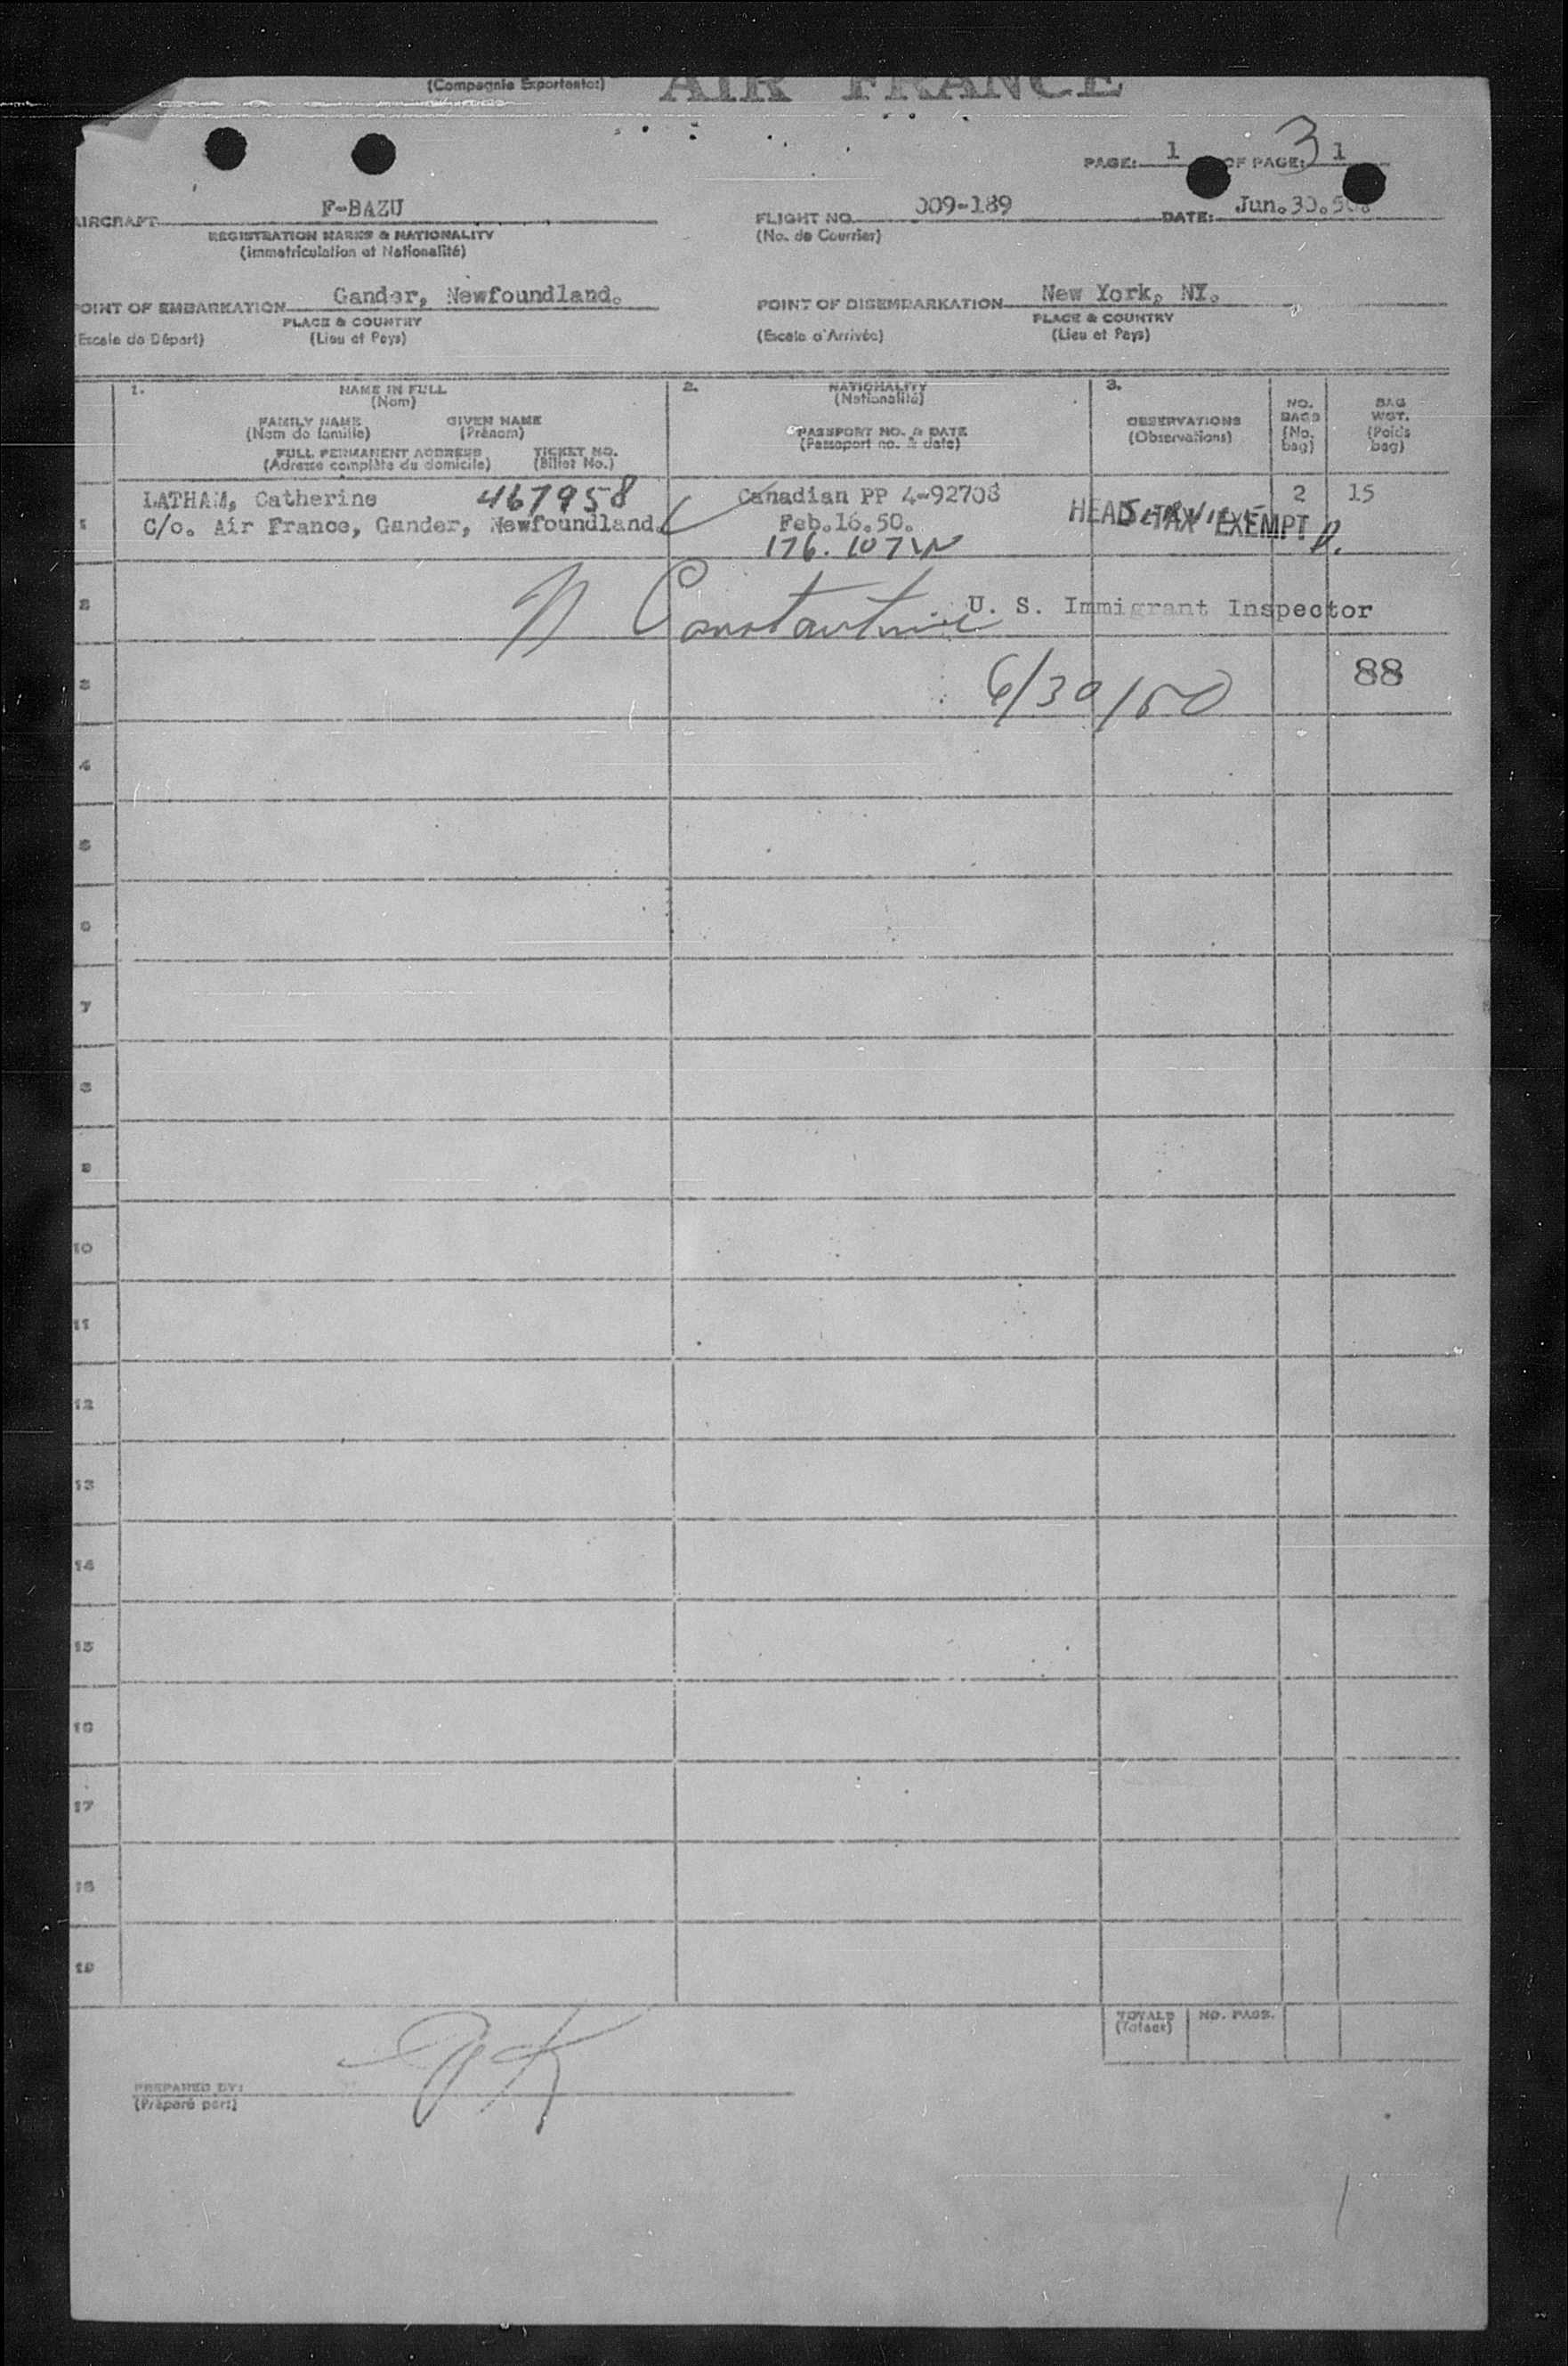 (Compagnie Exportante:) AIR FRANCE
PAGE: 1 OF PAGE: 3 1
AIRCRAFT F-BAZU
REGISTRATION MARKS & NATIONALITY
(immatriculation et Nationalité)
FLIGHT NO. 009-189
(No. de Courrier)
DATE: Jun.30.50.
POINT OF EMBARKATION Gander, Newfoundland.
PLACE & COUNTRY
(Escale de Départ) (Lieu et Pays)
POINT OF DISEMBARKATION New York, NY.
PLACE & COUNTRY
(Escale d'Arrivée) (Lieu et Pays)
1. NAME IN FULL
(Nom)
FAMILY NAME GIVEN NAME
(Nom de famille) (Prénom)
FULL PERMANENT ADDRESS TICKET NO.
(Adresse complète du domicile) (Billet No.)
2. NATIONALITY
(Nationalité)
PASSPORT NO. & DATE
(Passeport no. & date)
3.
OBSERVATIONS
(Observations)
NO.
BAGS
(No.
bag)
BAG
WGT.
(Poids
bag)
1 LATHAM, Catherine 467958 Canadian PP 4-92708 2 15
C/o. Air France, Gander, Newfoundland. Feb.16.50. HEAD TAX EXEMPT
176.107
2 N Constantine U. S. Immigrant Inspector
3 6/30/50 88
4
5
6
7
8
9
10
11
12
13
14
15
16
17
18
19
TOTALS NO. PASS.
(Totaux)
PREPARED BY:
(Préparé par:)